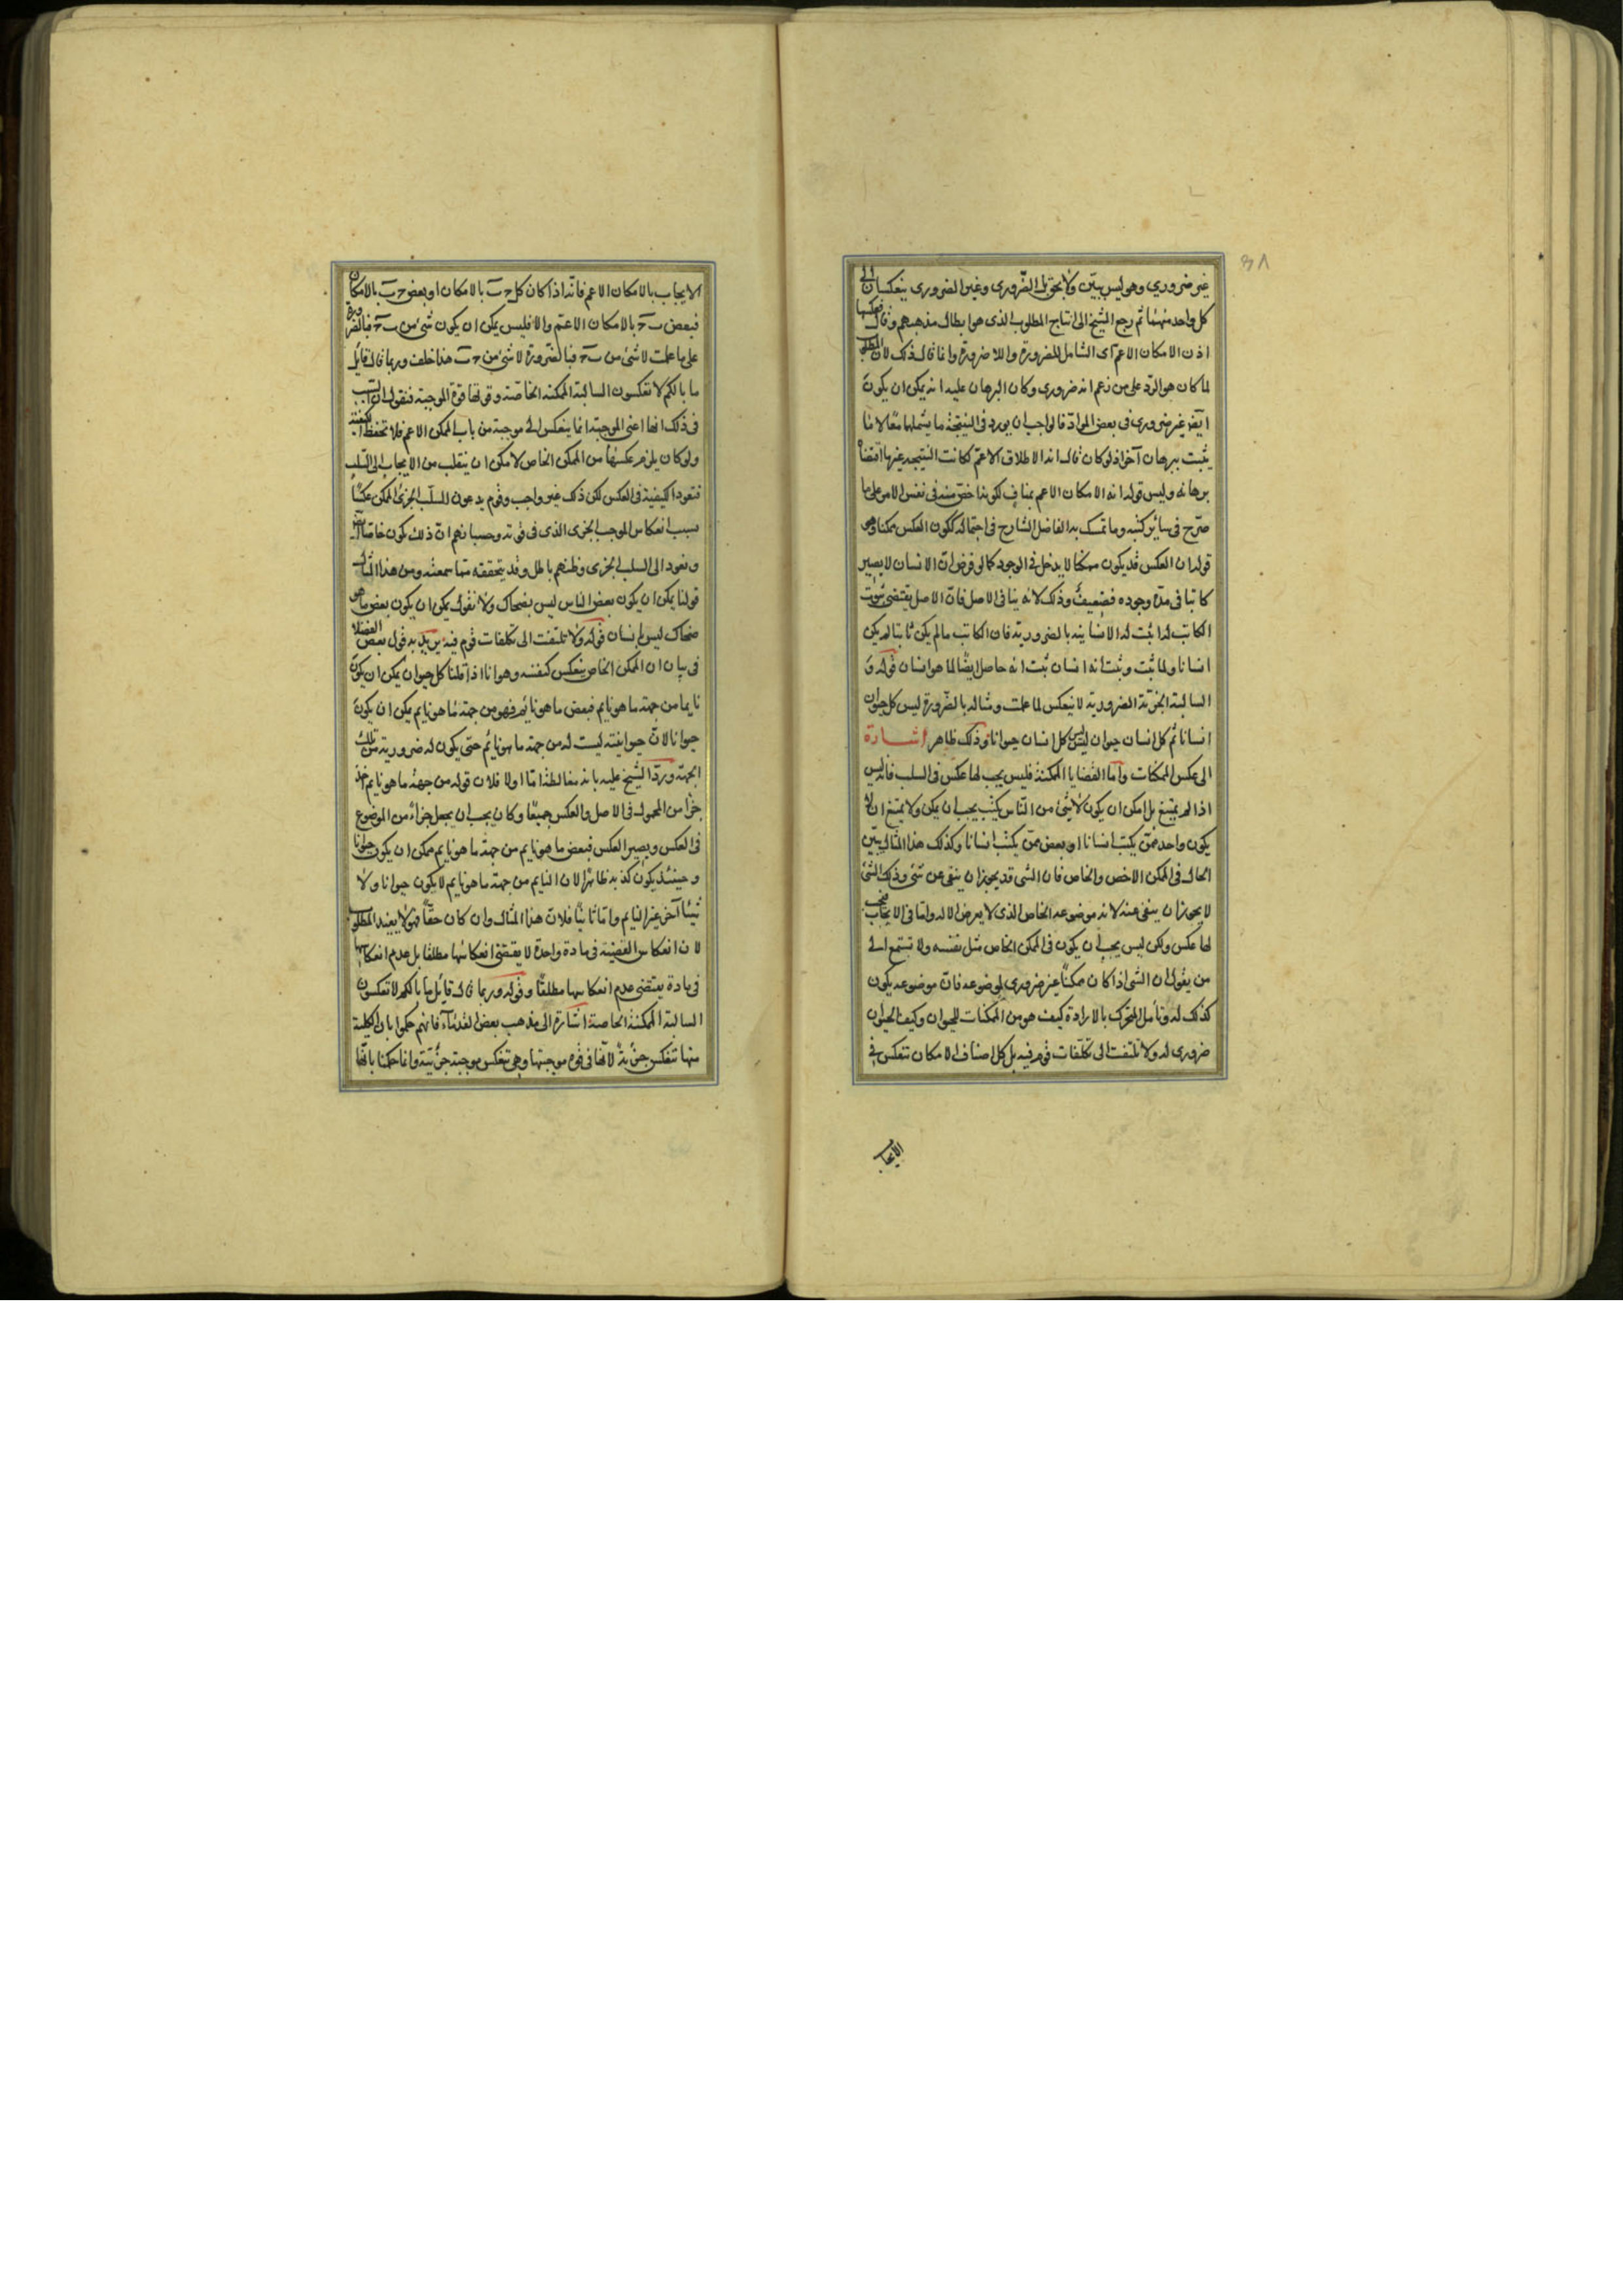 غير ضروري وهو ليس ببيّن ولا بحق بل الضّرورى وغير الضرورى ينعكسان الى
كل واحد منهما ثم رجع الشيخ الى انتاج المطلوب الذى هو ابطال مذهبهم وقال فعكسها
اذن الامكان الاعم اى الشامل للضرورة واللا ضرورة وانما قال ذلك لان المطلوب
لما كان هو الرد على من زعم انه ضرورى وكان البرهان عليه انه يمكن ان يكون
ايضا غير ضرورى فى بعض المواد فالواجب ان يورد فى النتيجة ما يشملهما معا لا ما
يثبت ببرهان آخر اذ لو كان قال انه الاطلاق الاعم لكانت النتيجة غير ما اقتضاه
برهانه وليس قوله انه الامكان الاعم بمناف لكونها اخص منه فى نفس الامر على ما
صرّح فى سائر كتبه وما تمسك به الفاضل الشارح فى احتماله لكون العكس ممكنا وهو
قوله ان العكس قد يكون ممكنا لا يدخل فى الوجود كما لو فرض ان الانسان لا يصير
كاتبا فى مدة وجوده فضعيف وذلك لانه ينافى الاصل فان الاصل يقتضى ثبوت
الكاتب لما ثبت له الانسانية بالضرورية فان الكاتب ما لم يكن ثابتا لم يكن
انسانا ولما ثبت وثبت انه انسان ثبت انه حاصل ايضا لما هو انسان قوله و
السالبة الجزئية الضرورية لا تنعكس لما علمت ومثاله بالضرورة ليس كل حيوان
انسانا ثم كل انسان حيوان ليس كل انسان حيوانا وذلك ظاهر اشارة
الى عكس الممكنات واما القضايا الممكنة فليس يجب لها عكس فى السلب فانه ليس
اذا لم يمتنع بل امكن ان يكون لا شئ من الناس يكتب يجب ان يمكن ولا يمتنع ان لا
يكون واحد ممّن يكتب انسانا او بعض ممّن يكتب انسانا وكذلك هذا المثال يبيّن
الحال فى الممكن الاخص والخاص فان الشى قد يجوز ان ينفى عن شئ وذلك الشئ
لا يجوز ان ينفى عنه لانه موضوعه الخاص الذى لا يعرض الا له واما فى الايجاب فيجب
لها عكس ولكن ليس يجب ان يكون فى الممكن الخاص مثل نفسه ولا تستمع الى
من يقول ان الشى اذا كان ممكنا غير ضرورى لموضوعه فان موضوعه يكون
كذلك له وتأمل المتحرك بالارادة كيف هو من الممكنات للحيوان وكيف الحيوان
ضرورى له ولا تلتفت الى تكلفات قوم فيه بل كل اصناف الامكان تنعكس فى
الايجاب
الايجاب بالامكان الاعم فانه اذا كان كل ج ب بالامكان او بعض ج ب بالامكان
فبعض ب ج بالامكان الاعم والا فليس يمكن ان يكون شئ من ب ج فبالضرورة
على ما علمت لا شئ من ب ج فبالضرورة لا شئ من ج ب هذا خلف وربما قال قايل
ما بالكم لا تعكسون السالبة الممكنة الخاصة وقوتها قوة الموجبة فنقول ان السبب
فى ذلك انها اعنى الموجبة انما ينعكس الى موجبة من باب الممكن الاعم فلا تحفظ الكيفية
ولو كان يلزم عكسها من الممكن الخاص لامكن ان ينقلب من الايجاب الى السلب
فتعود الكيفية فى العكس لكن ذلك غير واجب وقوم يدعون للسلب الجزئى الممكن عكسا
بسبب انعكاس الموجب الجزئى الذى فى قوته وحسبانهم ان ذلك يكون خاصا ايضا
ويعود الى السلب الجزى وظنهم باطل وقد يتحققه مما سمعته ومن هذا المثال
قولنا يمكن ان يكون بعض الناس ليس بضحاك ولا نقول يمكن ان يكون بعض ما هو
ضحاك ليس بانسان قوله ولا تلتفت الى تكلفات قوم فيه يريد به قول بعض الفضلا
فى بيان ان الممكن الخاص ينعكس كنفسه وهو انا اذا قلنا كل حيوان يمكن ان يكون
نايما من جهة ما هو نايم فبعض ما هو نائم فهو من جهة ما هو نايم يمكن ان يكون
حيوانا لان حيوانيته ليست له من جهة ما هو نائم حتى يكون له ضرورية من تلك
الجهة وردّ الشيخ عليه بانه مغالطة اما اولا فلان قوله من جهة ما هو نايم اخذ
جزأ من المحمول فى الاصل والعكس جميعا وكان يجب ان يجعل جزأ من الموضوع
فى العكس ويصير العكس فبعض ما هو نايم من جهة ما هو نايم ممكن ان يكون حيوانا
وحينئذ يكون كذبه ظاهرا لان النايم من جهة ما هو نايم لا يكون حيوانا ولا
شيئا آخر غير النايم واما ثانيا فلان هذا المثال وان كان حقا فهو لا يفيد المطلوب
لان انعكاس القضية فى مادة واحدة لا يقتضى انعكاسها مطلقا بل عدم انعكاسها
فى مادة يقتضى عدم انعكاسها مطلقا وقوله وربما قال قايل ما بالكم لا تعكسون
السالبة الممكنة الخاصة اشارة الى مذهب بعض القدماء فانهم حكموا بان الكلية
منها تنعكس جزئية لانها فى قوة موجبتها وهى تنعكس موجبة جزئية وانما حكمنا بانها